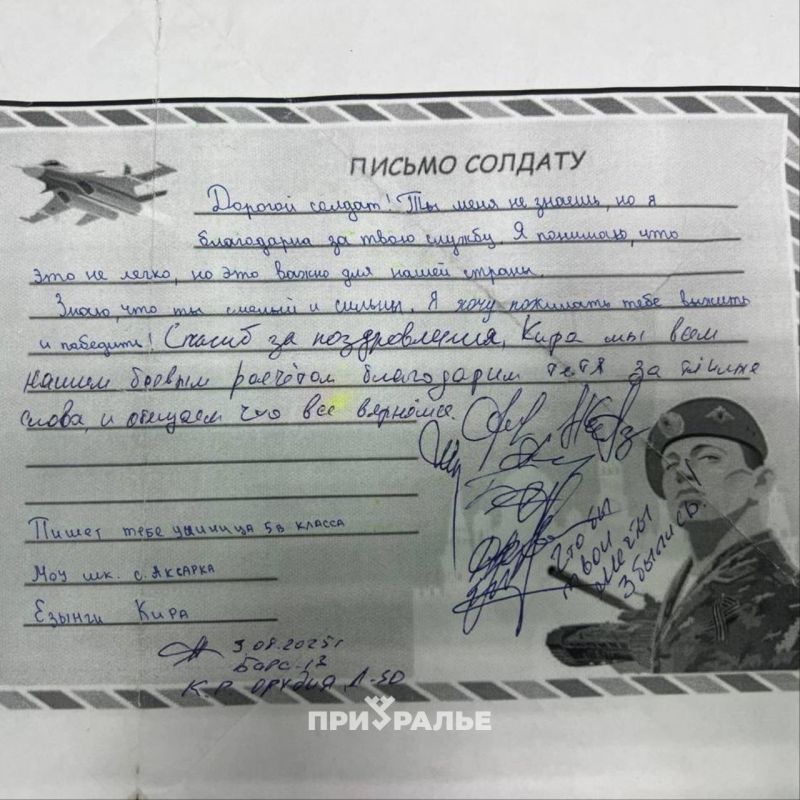 ПИСЬМО СОЛДАТУ
Дорогой солдат! Ты меня не знаешь, но я
благодарна за твою службу. Я понимаю, что
это не легко, но это важно для нашей страны.
Знаю, что ты смелый и сильны. Я хочу пожилать тебе выжить
и победить! Спасиб за поздровления, Кира мы всем
нашим боевым расчётом благодарим тебя за тёплые
слова, и обещаем что все вярнёмся.
Пишет тебе учиница 5в класса
Моу шк. с. Аксарка
Езынги Кира
Что бы
твои
мечты
Збылись!
9.08.2025г
Барс-17
К.Р. орудия Д-30
ПРИУРАЛЬЕ